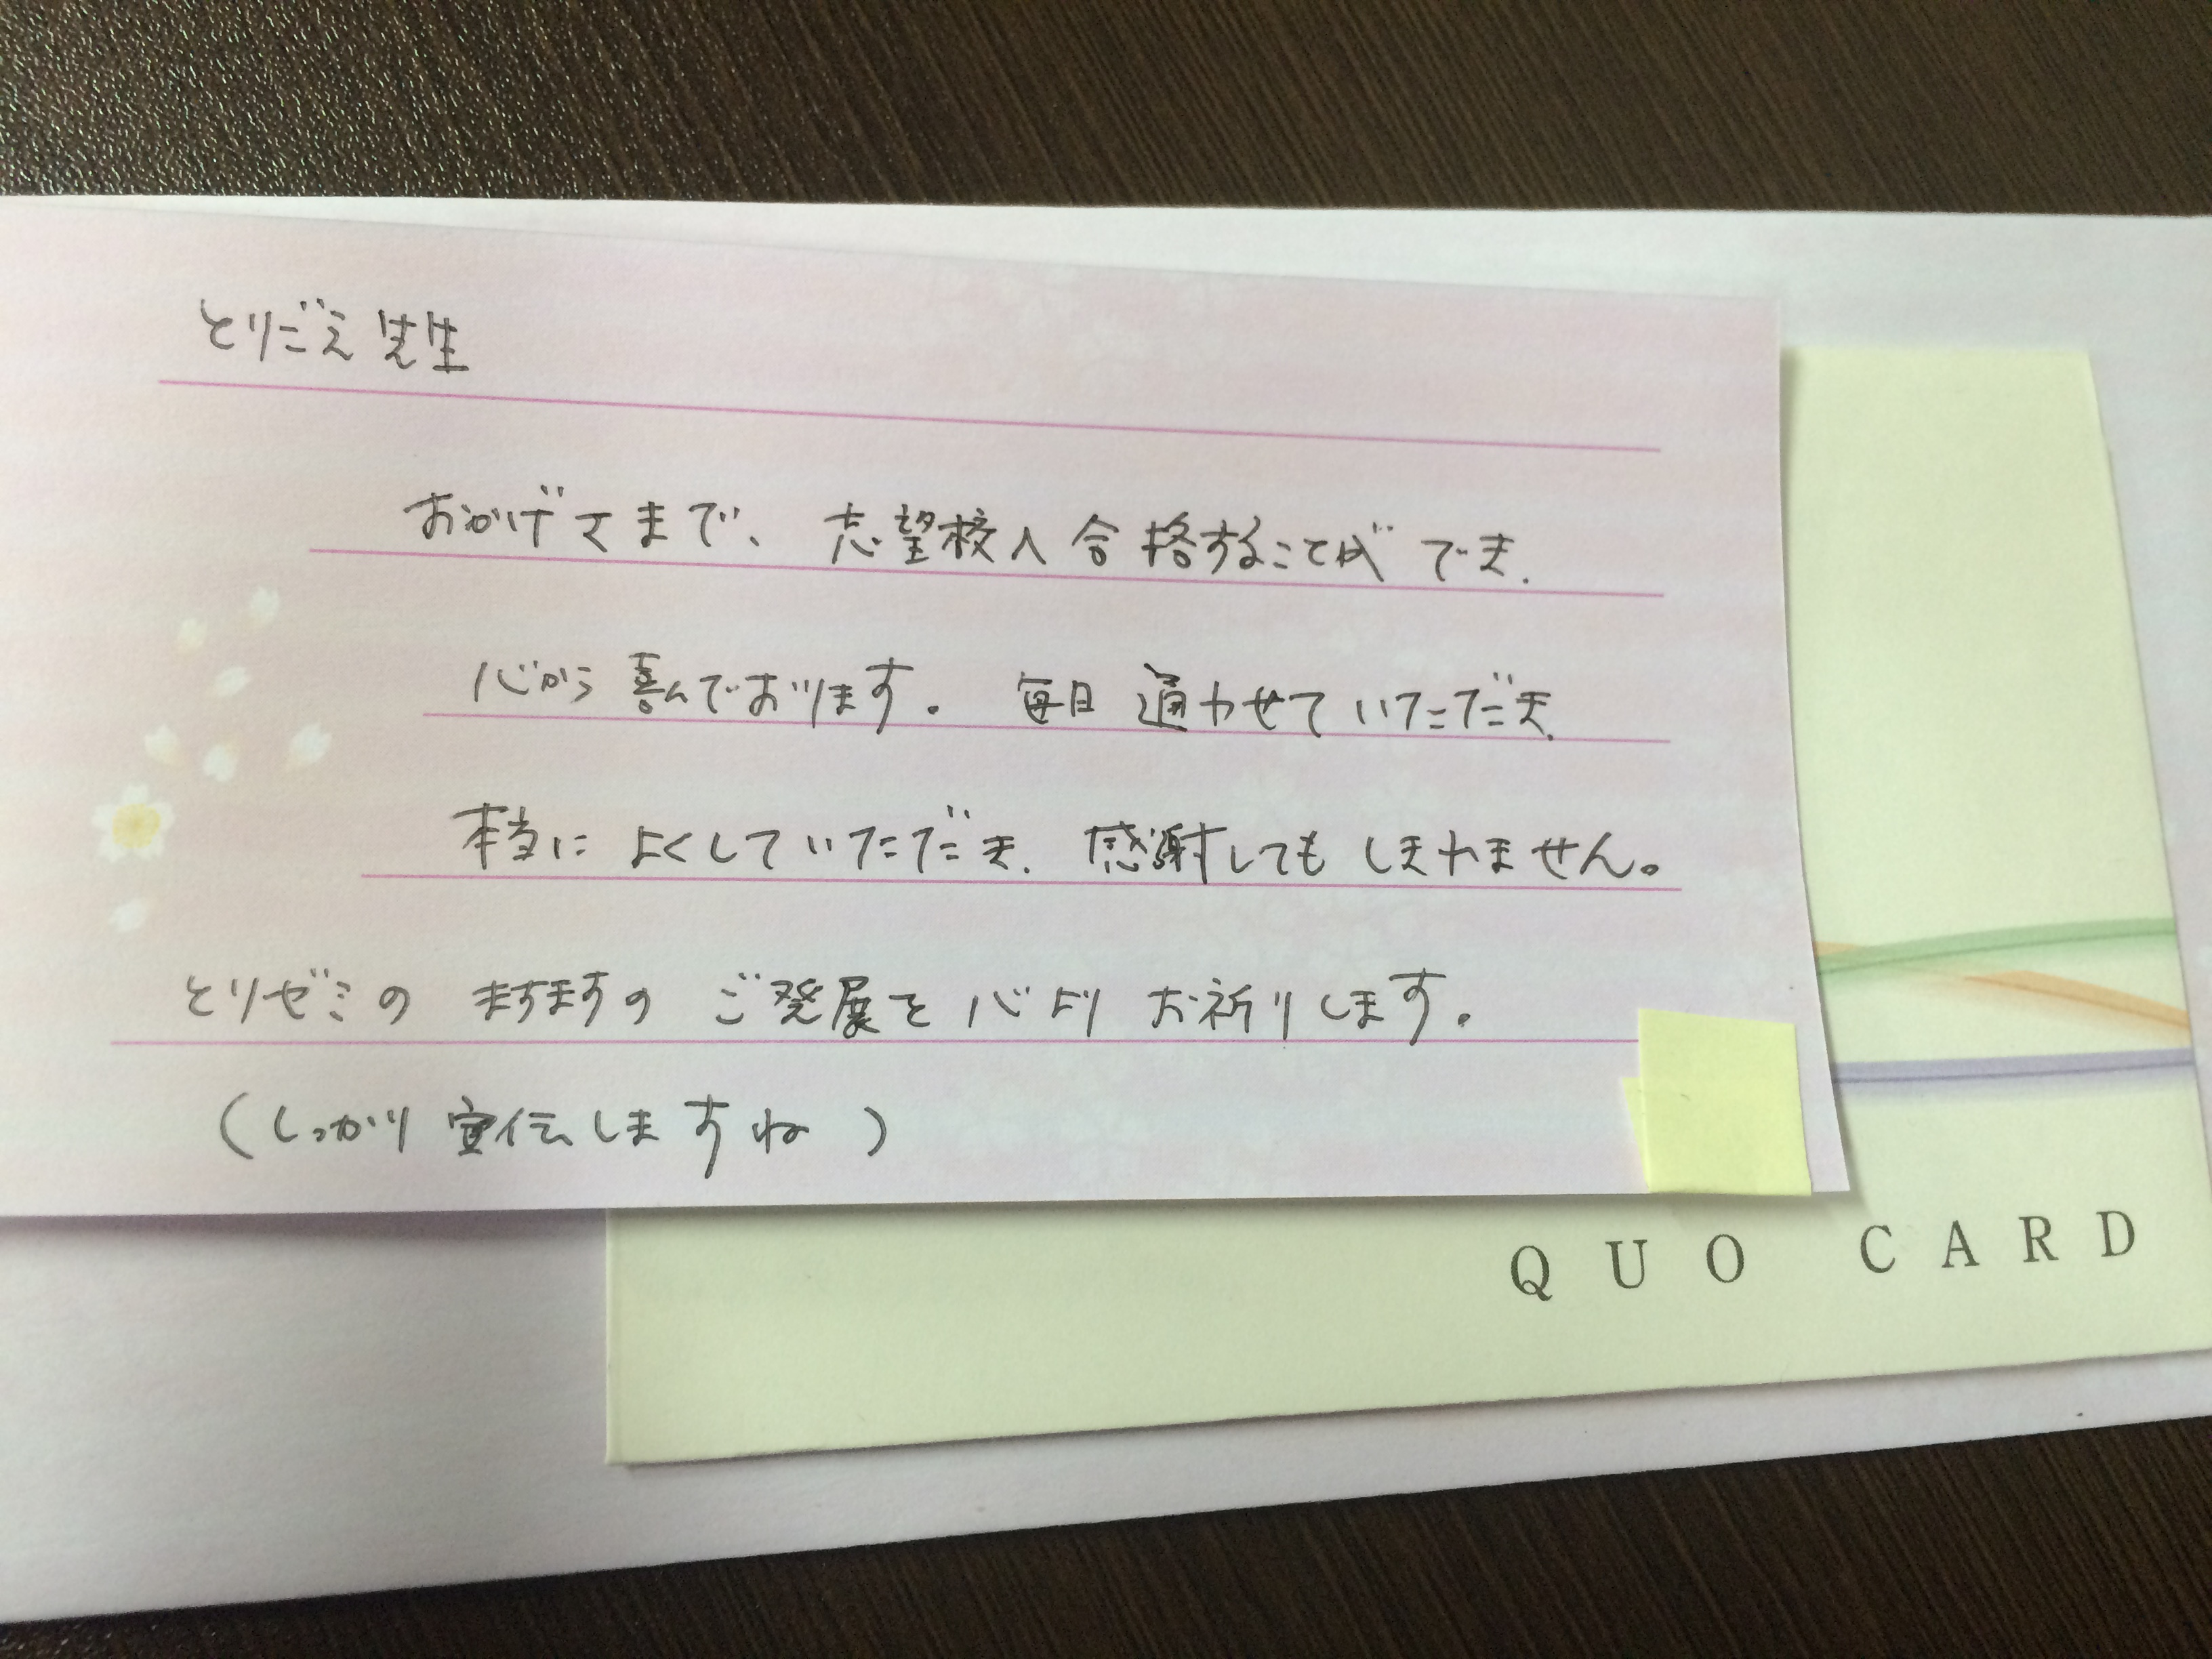 とりごえ先生
おかげさまで、志望校へ合格することができ、
心から喜んでおります。 毎日通わせていただき、
本当によくしていただき、感謝してもしきれません。
とりゼミのますますのご発展を心よりお祈りします。
(しっかり宣伝しますね)
QUO CARD